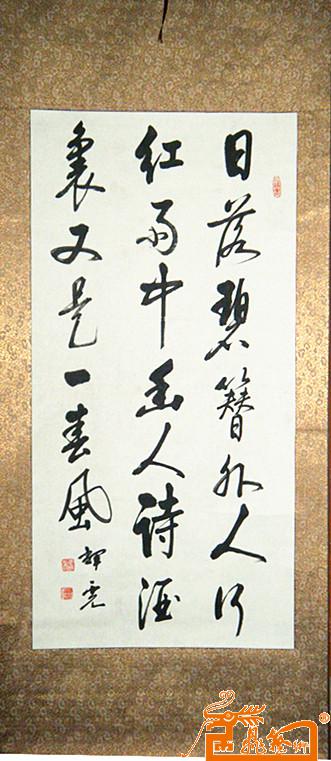 日落碧簪外人行
红雨中幽人诗酒
里又是一春风